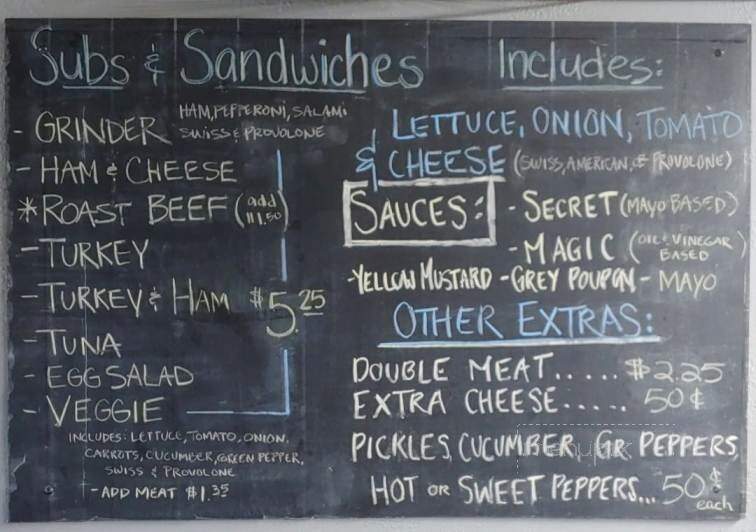 Subs & Sandwiches
- GRINDER HAM, PEPPERONI, SALAMI
SWISS & PROVOLONE
- HAM & CHEESE
* ROAST BEEF (add $1.50)
- TURKEY
- TURKEY & HAM $5.25
- TUNA
- EGG SALAD
- VEGGIE
INCLUDES: LETTUCE, TOMATO, ONION,
CARROTS, CUCUMBER, GREEN PEPPER,
SWISS & PROVOLONE
- ADD MEAT $1.35
Includes:
LETTUCE, ONION, TOMATO
& CHEESE (SWISS, AMERICAN, OR PROVOLONE)
SAUCES: - SECRET (MAYO BASED)
- MAGIC (OIL & VINEGAR
BASED)
- YELLOW MUSTARD - GREY POUPON - MAYO
OTHER EXTRAS:
DOUBLE MEAT..... $2.25
EXTRA CHEESE..... 50¢
PICKLES, CUCUMBER, GR PEPPERS,
HOT OR SWEET PEPPERS... 50¢
each